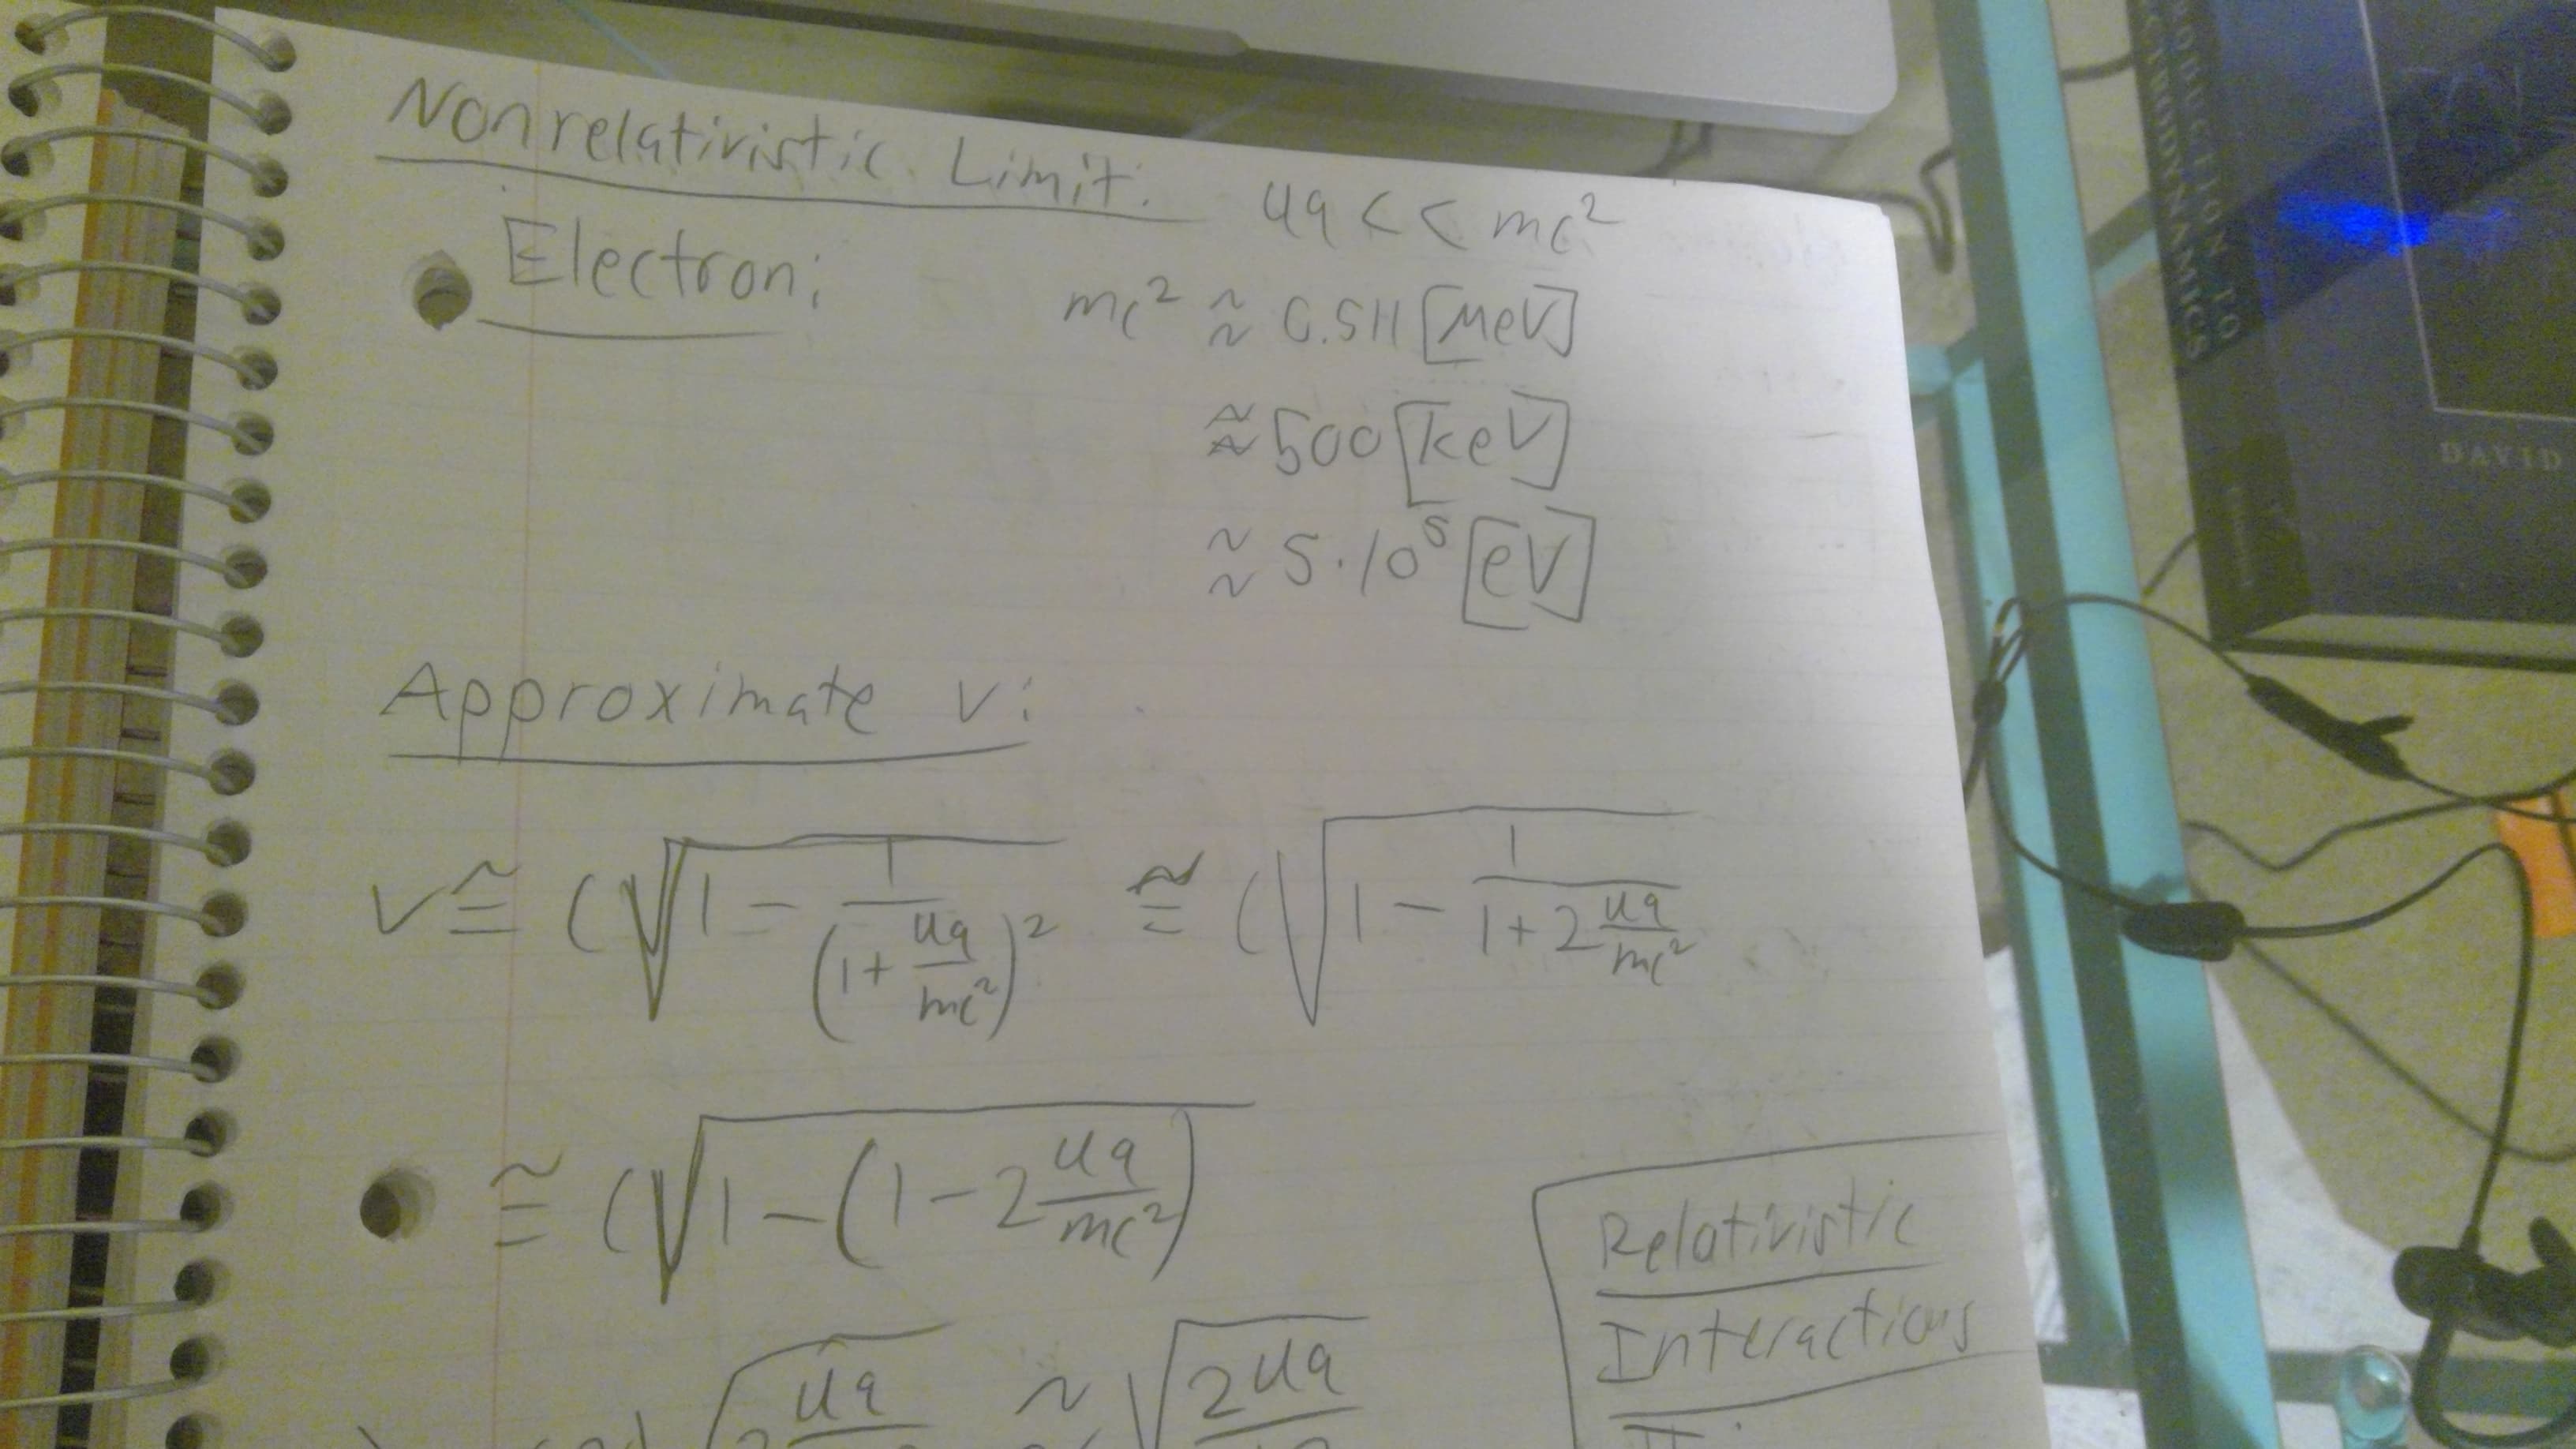 Nonrelativistic Limit:
Uq << mc²
Electron:
mc² ≈ 0.511 [MeV]
≈ 500 [keV]
≈ 5·10⁵ [eV]
Approximate v:
v ≅ c√(1 - 1/(1 + Uq/mc²)²) ≅ c√(1 - 1/(1 + 2 Uq/mc²))
≅ c√(1 - (1 - 2 Uq/mc²))
Uq ≈ √2Uq
Relativistic
Interactions
TO
DYNAMICS
DAVID